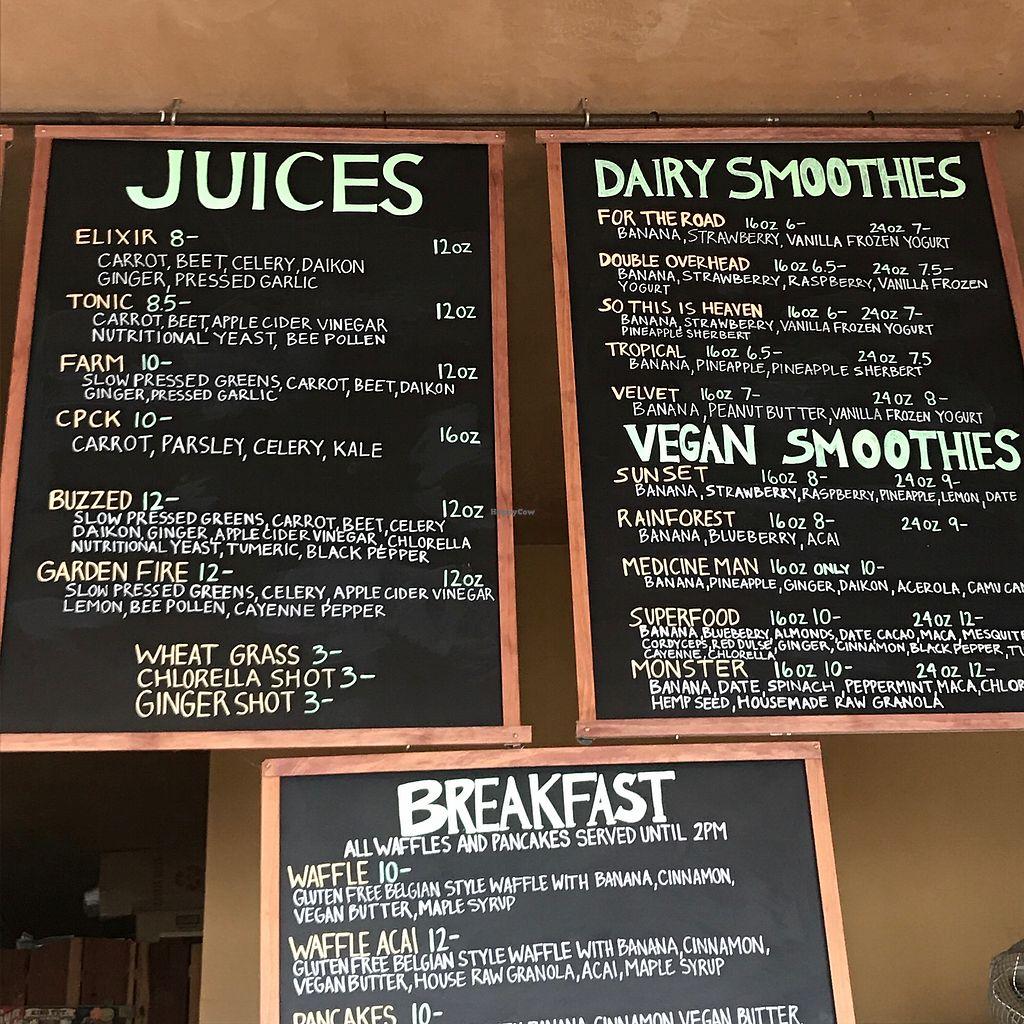 JUICES
ELIXIR 8- 12oz
CARROT, BEET, CELERY, DAIKON
GINGER, PRESSED GARLIC
TONIC 8.5- 12oz
CARROT, BEET, APPLE CIDER VINEGAR
NUTRITIONAL YEAST, BEE POLLEN
FARM 10- 12oz
SLOW PRESSED GREENS, CARROT, BEET, DAIKON
GINGER, PRESSED GARLIC
CPCK 10- 16oz
CARROT, PARSLEY, CELERY, KALE
BUZZED 12- 12oz
SLOW PRESSED GREENS, CARROT, BEET, CELERY
DAIKON, GINGER, APPLE CIDER VINEGAR, CHLORELLA
NUTRITIONAL YEAST, TUMERIC, BLACK PEPPER
GARDEN FIRE 12- 12oz
SLOW PRESSED GREENS, CELERY, APPLE CIDER VINEGAR
LEMON, BEE POLLEN, CAYENNE PEPPER
WHEAT GRASS 3-
CHLORELLA SHOT 3-
GINGER SHOT 3-
DAIRY SMOOTHIES
FOR THE ROAD 16oz 6- 24oz 7-
BANANA, STRAWBERRY, VANILLA FROZEN YOGURT
DOUBLE OVERHEAD 16oz 6.5- 24oz 7.5-
BANANA, STRAWBERRY, RASPBERRY, VANILLA FROZEN
YOGURT
SO THIS IS HEAVEN 16oz 6- 24oz 7-
BANANA, STRAWBERRY, VANILLA FROZEN YOGURT
PINEAPPLE SHERBERT
TROPICAL 16oz 6.5- 24oz 7.5
BANANA, PINEAPPLE, PINEAPPLE SHERBERT
VELVET 16oz 7- 24oz 8-
BANANA, PEANUT BUTTER, VANILLA FROZEN YOGURT
VEGAN SMOOTHIES
SUNSET 16oz 8- 24oz 9-
BANANA, STRAWBERRY, RASPBERRY, PINEAPPLE, LEMON, DATE
RAINFOREST 16oz 8- 24oz 9-
BANANA, BLUEBERRY, ACAI
MEDICINE MAN 16oz ONLY 10-
BANANA, PINEAPPLE, GINGER, DAIKON, ACEROLA, CAMU CAM
SUPERFOOD 16oz 10- 24oz 12-
BANANA, BLUEBERRY, ALMONDS, DATE, CACAO, MACA, MESQUITE
CORDYCEPS, RED DULSE, GINGER, CINNAMON, BLACK PEPPER, TU
CAYENNE, CHLORELLA
MONSTER 16oz 10- 24oz 12-
BANANA, DATE, SPINACH, PEPPERMINT, MACA, CHLOR
HEMP SEED, HOUSEMADE RAW GRANOLA
HappyCow
BREAKFAST
ALL WAFFLES AND PANCAKES SERVED UNTIL 2PM
WAFFLE 10-
GLUTEN FREE BELGIAN STYLE WAFFLE WITH BANANA, CINNAMON,
VEGAN BUTTER, MAPLE SYRUP
WAFFLE ACAI 12-
GLUTEN FREE BELGIAN STYLE WAFFLE WITH BANANA, CINNAMON,
VEGAN BUTTER, HOUSE RAW GRANOLA, ACAI, MAPLE SYRUP
PANCAKES 10-
BANANA, CINNAMON, VEGAN BUTTER,